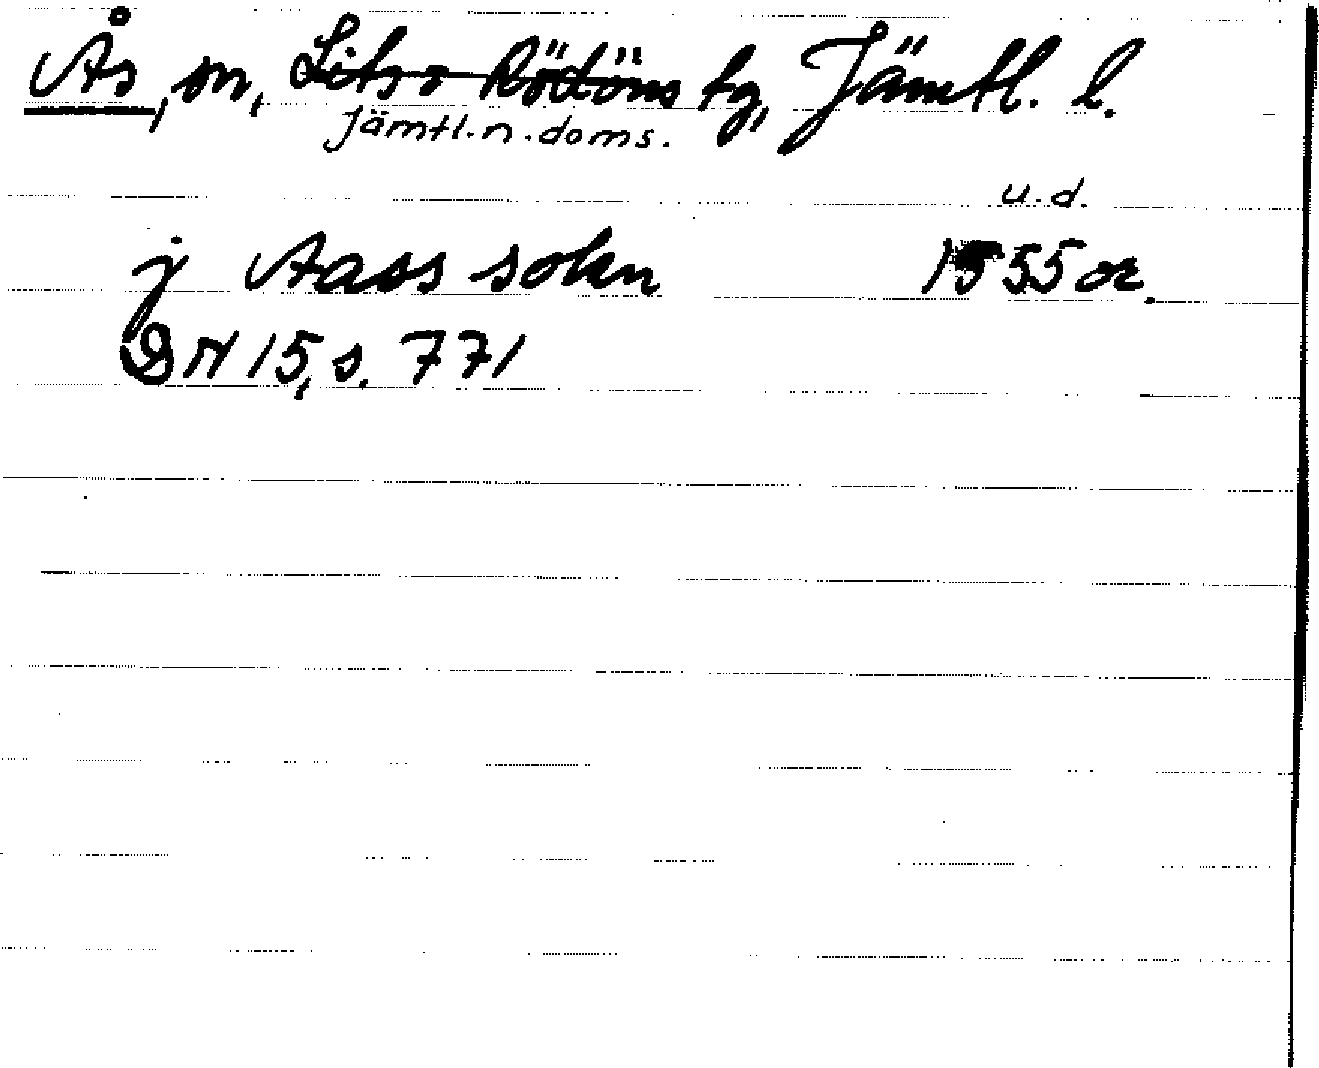 Ås, sn, Lits o Rödöns tg, Jämtl. l.
Jämtl. n. doms.
u. d.
j Aass sokn 1555 or.
DN 15, s. 771